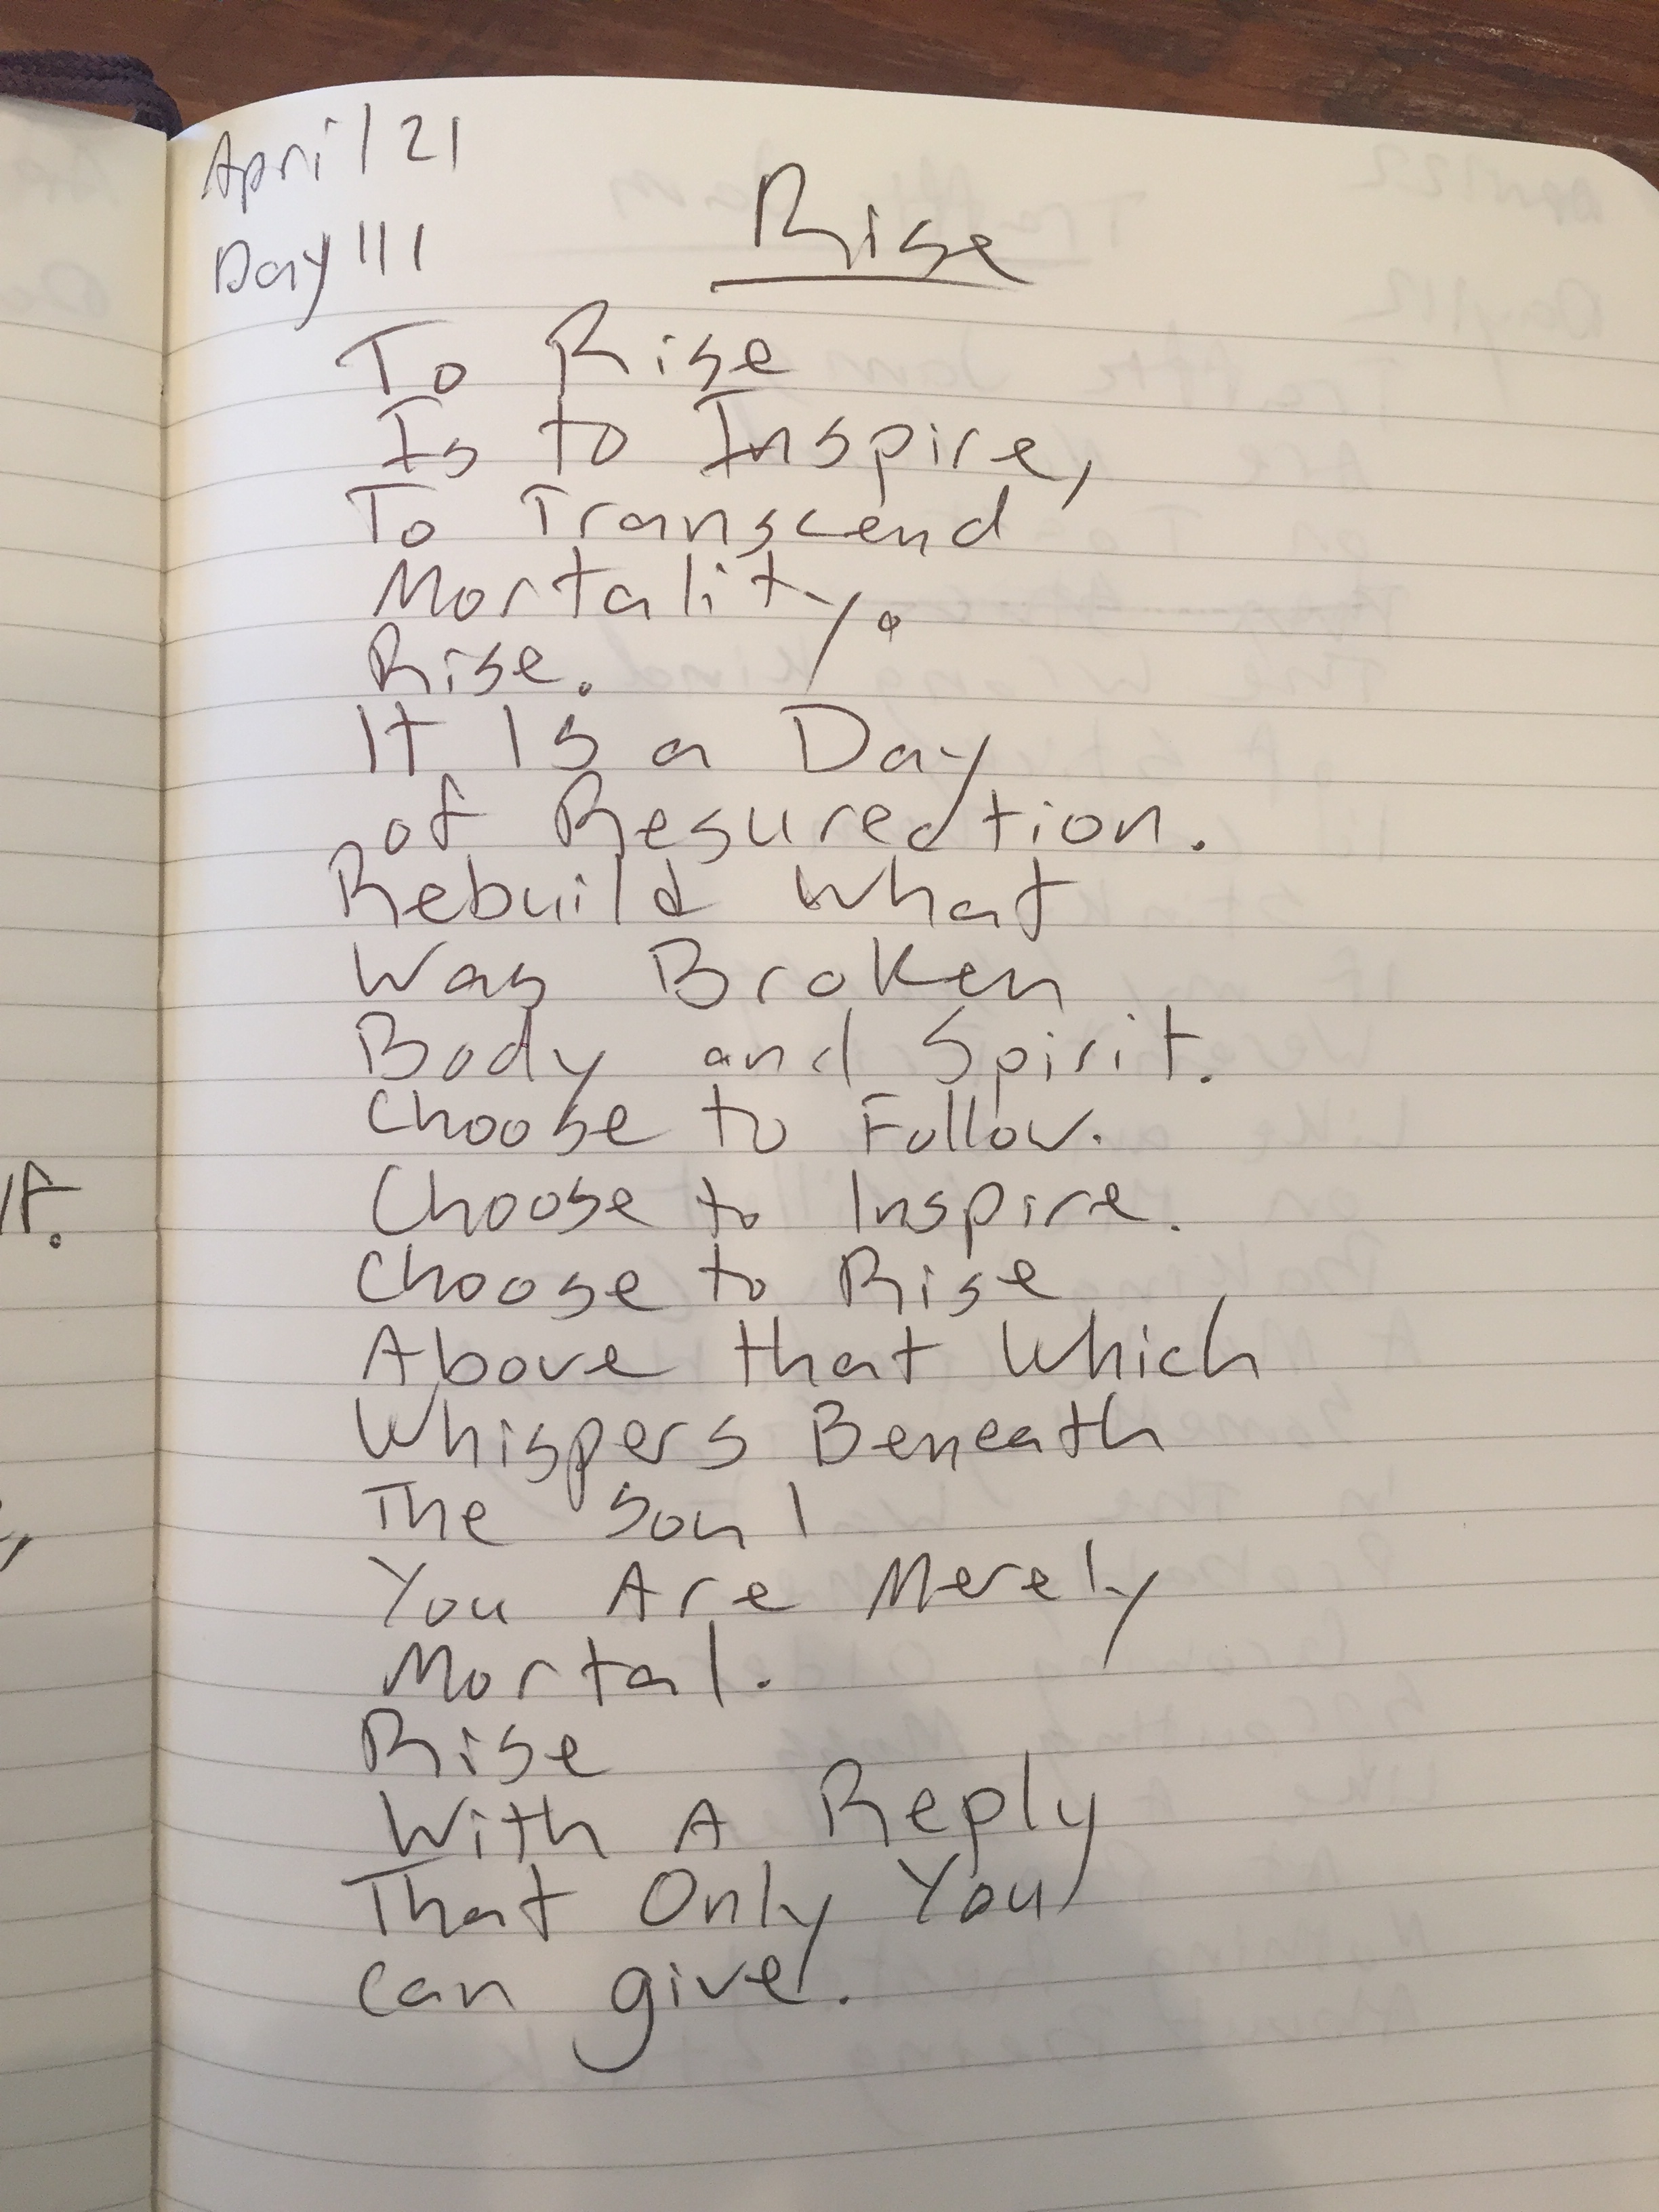 April 21
Day 111
Rise
To Rise
Is to Inspire,
To Transcend
Mortality.
Rise.
It Is a Day
of Resurection.
Rebuild What
Was Broken
Body and Spirit.
Choose to Follow.
Choose to Inspire.
Choose to Rise
Above that Which
Whispers Beneath
The Soul
You Are Merely
Mortal.
Rise
With A Reply
That Only You
can give.